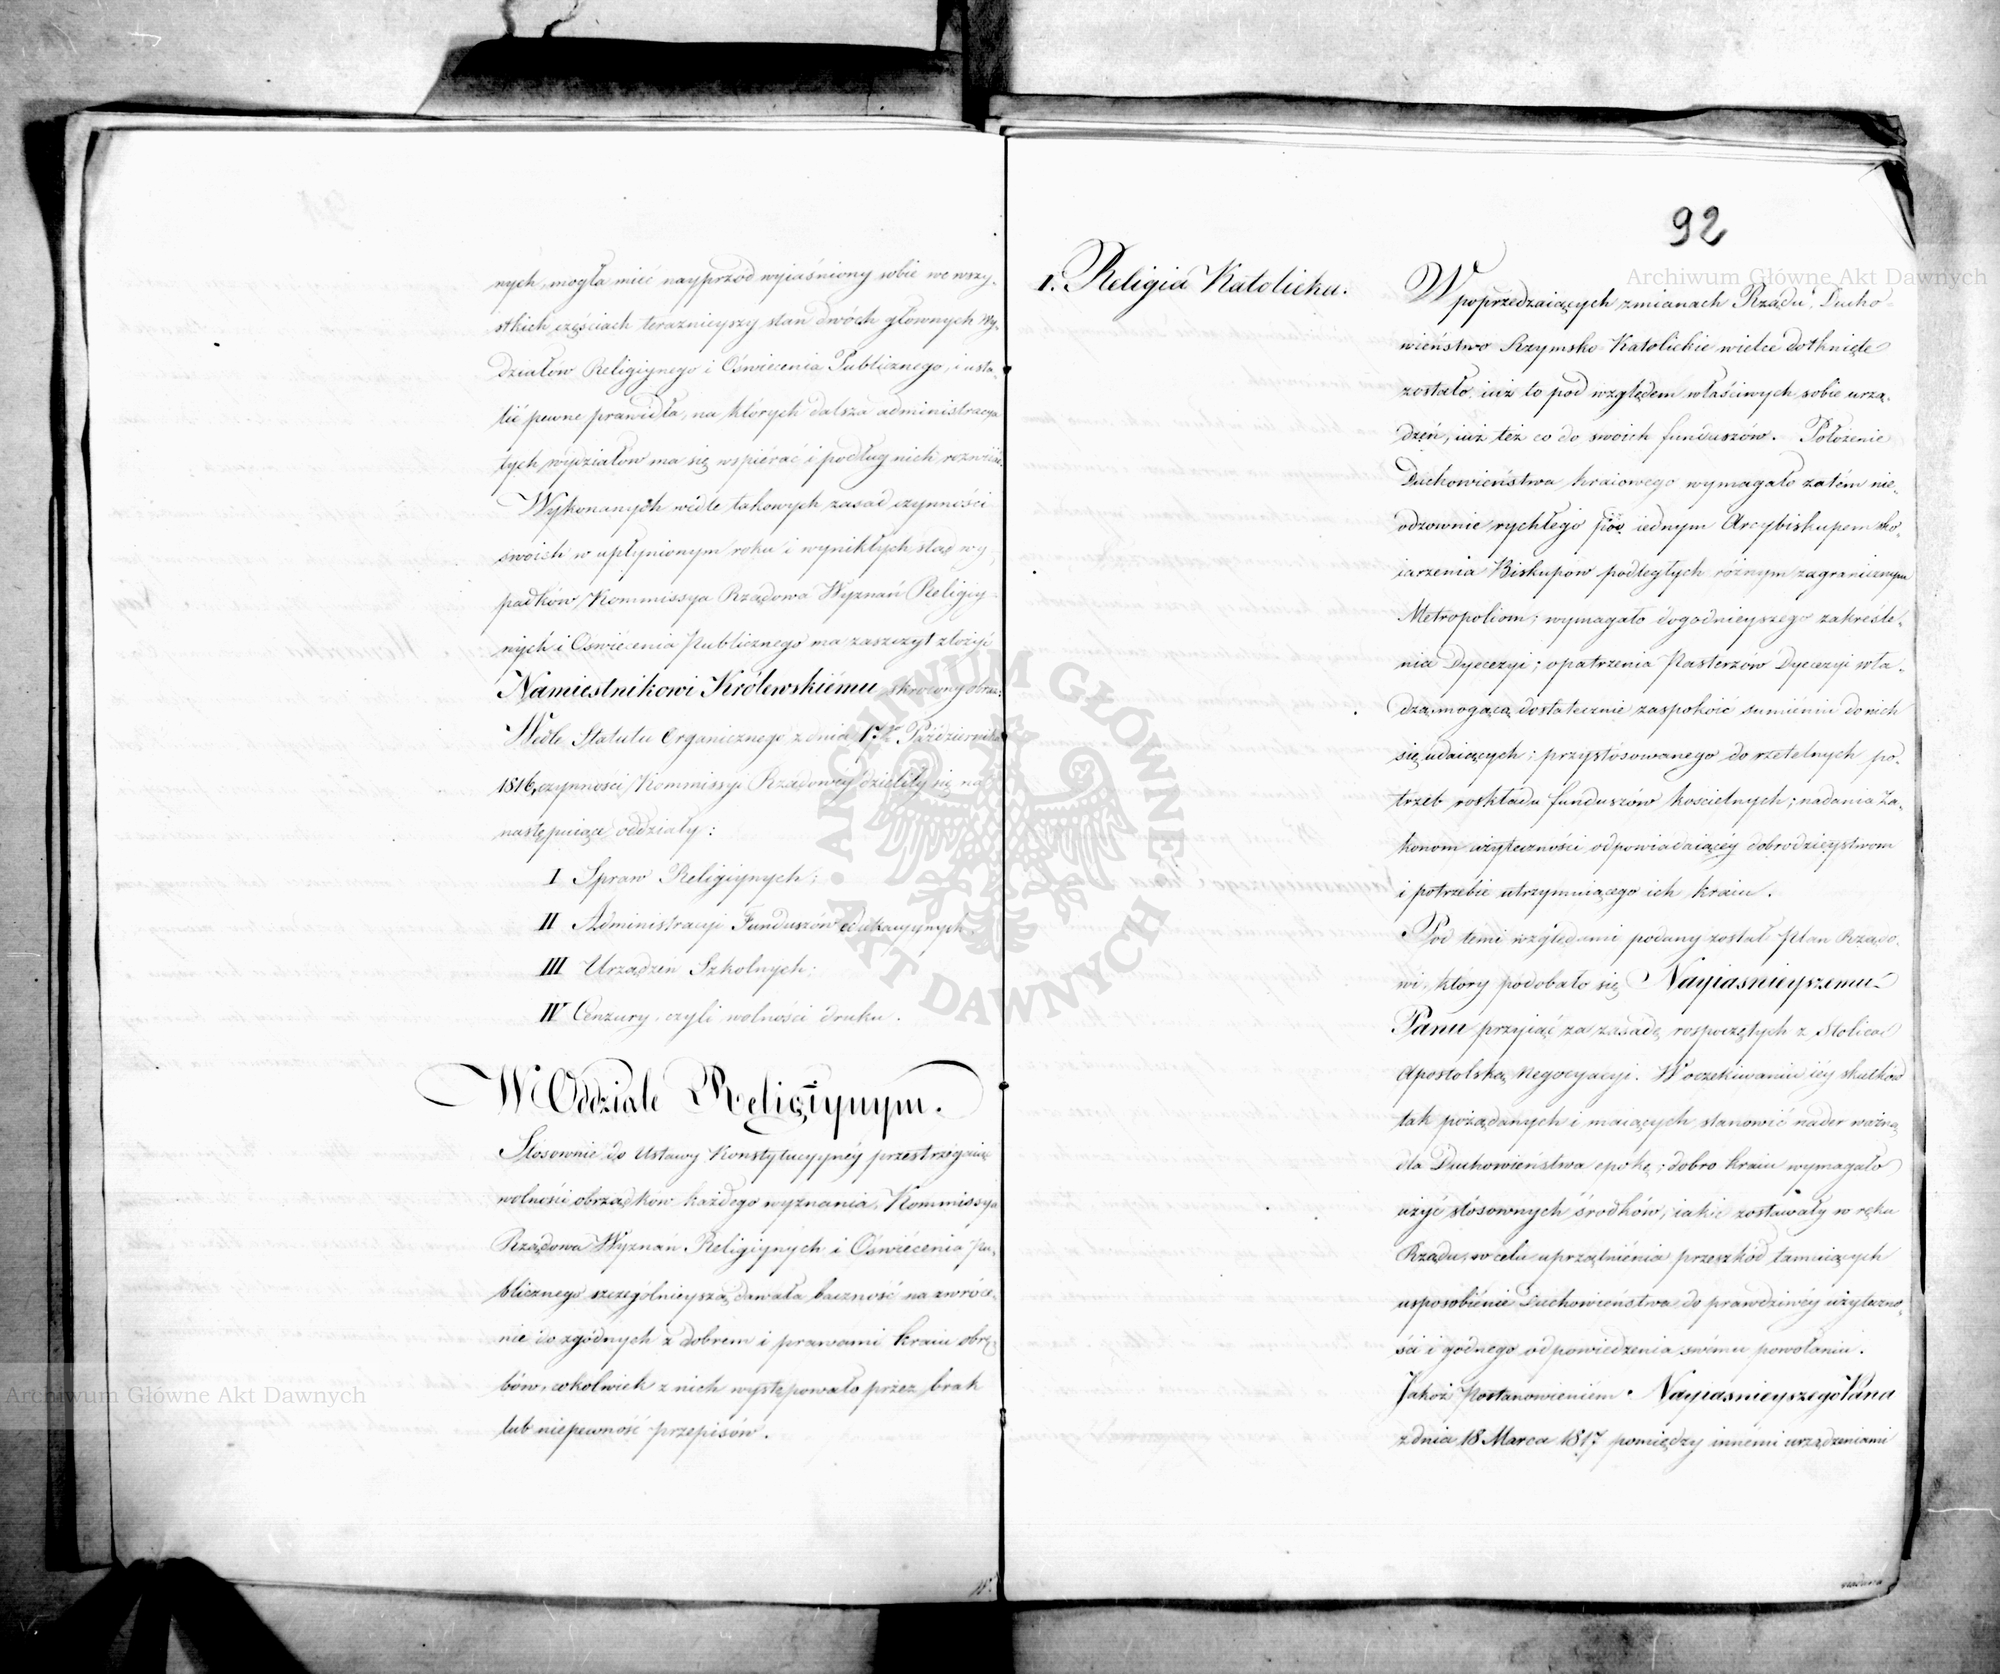 nych, mogła mieć nayprzód wyjaśniony sobie we wszy-
stkich częściach teraznieyszy stan dwóch głównych Wy-
działów Religiynego i Oświecenia Publicznego, i usta-
lić pewne prawidła, na których dalsza administracya
tych wydziałów ma się wspierać i podług nich rozwiiać.
Wykonanych wedle takowych zasad czynności
swoich w upłynionym roku i wynikłych stąd wy-
padków, Kommissya Rządowa Wyznań Religiy-
nych i Oświecenia Publicznego ma zaszczyt złożyć
Namiestnikowi Królewskiému skrócony obraz.
Wedle Statutu Organicznego z dnia Października
1816, czynności Kommissyi Rządowey dzieliły się na
następuiące oddziały:
I Spraw Religiynych;
II Administracyi Funduszów edukacyynych.
III Urządzeń Szkolnych;
IV Cenzury, czyli wolności druku.
W Oddziale Religiynym.
Stosownie do Ustawy Konstytucyynéy przestrzegaiąc
wolności obrządków każdego wyznania, Kommissya
Rządowa Wyznań Religiynych i Oświécenia Pu-
blicznego szczególnieyszą dawała baczność na zwróce-
nie do zgódnych z dobrem i prawami kraiu obrę-
bów, cokolwiek z nich występowało przez brak
lub niepewność przepisów.
92
1. Religia Katolicka.
W poprzedzaiących zmianach Rządu, Ducho-
wieństwo Rzymsko Katolickie wielce dotknięte
zostało, iuż to pod względem właściwych sobie urzą-
dzeń, iuż też co do swoich funduszów. Położenie
Duchowieństwa kraiowego wymagało zatém nie-
odzownie rychłego pod iednym Arcybiskupem sko-
iarzenia Biskupów podległych różnym zagranicznym
Metropoliom; wymagało dogodnieyszego zakréśle-
nia Dyecezyi; opatrzenia Pasterzów Dyecezyi wła-
dzą mogącą dostatecznie zaspokoić sumieniu do nich
się udaiących; przystosowanego do rzetelnych po-
trzeb roskładu funduszów kościelnych; nadania Za-
konom użyteczności odpowiadaiącéy dobrodzieystwom
i potrzebie utrzymuiącego ich kraiu.
Pod temi względami podany został Plan Rządo-
wi, który podobało się Nayiaśnieyszemu
Panu przyiąć za zasadę rospoczętych z Stolicą
Apostolską Negocyacyi. W oczekiwaniu iéy skutków
tak pożądanych i maiących stanowić nader ważną
dla Duchowieństwa epokę; dobro kraiu wymagało
użyć stosownych środków, iakie zostawały w ręku
Rządu, w celu uprzątnienia przeszkód tamuiących
usposobienie Duchowieństwa do prawdziwéy użyteczno-
ści i godnego odpowiedzenia swému powołaniu.
Jakoż Postanowieniem Nayiaśnieyszego Pana
z dnia 18 Marca 1817 pomiędzy innémi urządzeniami
Archiwum Główne Akt Dawnych
Archiwum Główne Akt Dawnych
ARCHIWUM GŁÓWNE AKT DAWNYCH